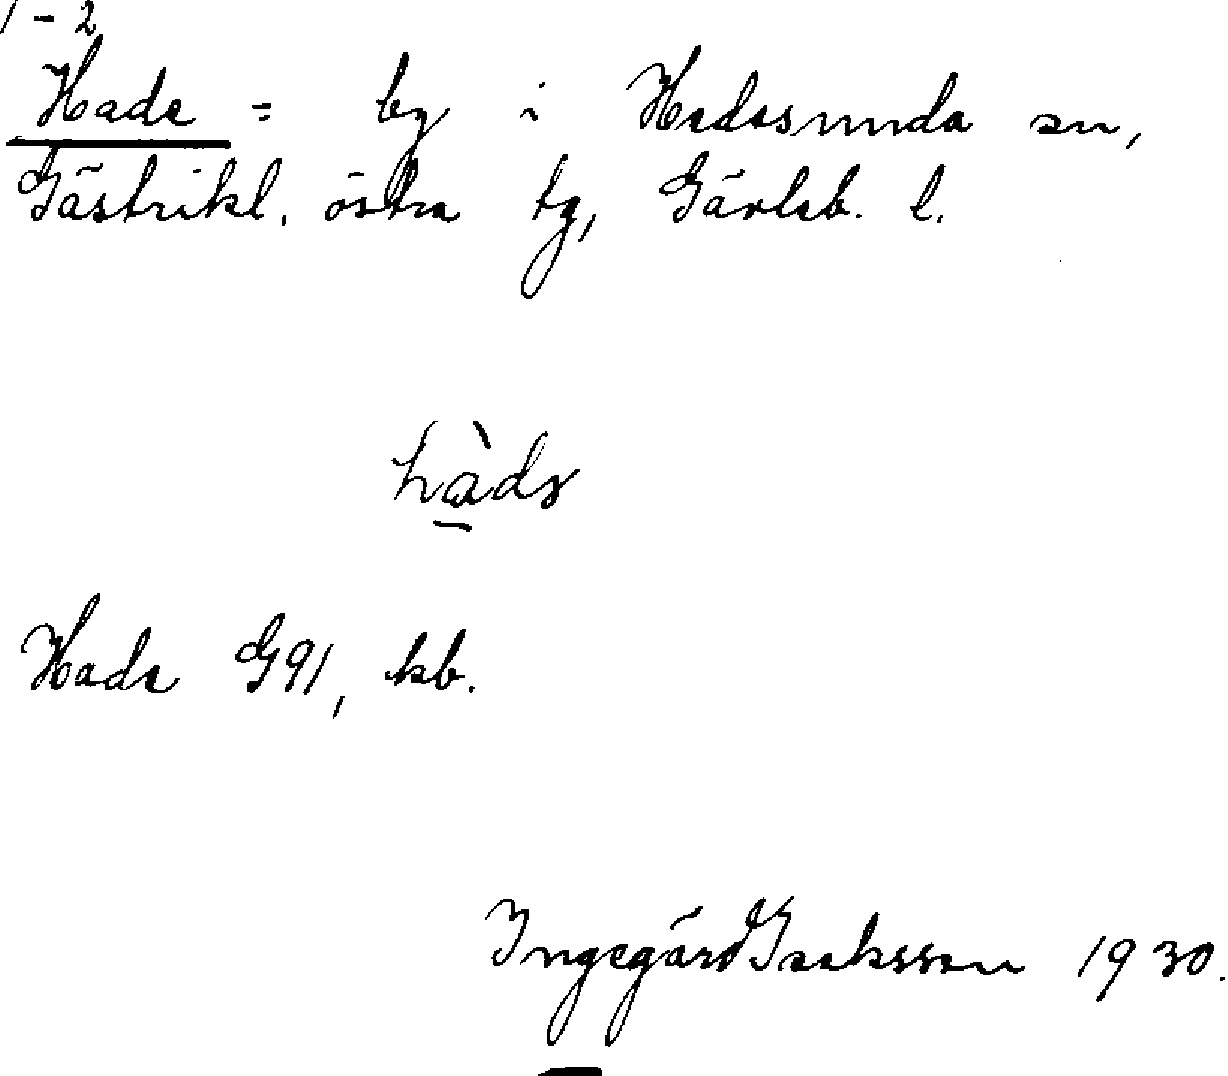 1-2
Hade = by i Hedesunda sn,
Gästrikl. östra tg, Gävleb. l.
hàdə
Hade G91, kb.
Ingegärd Isaksson 1930.